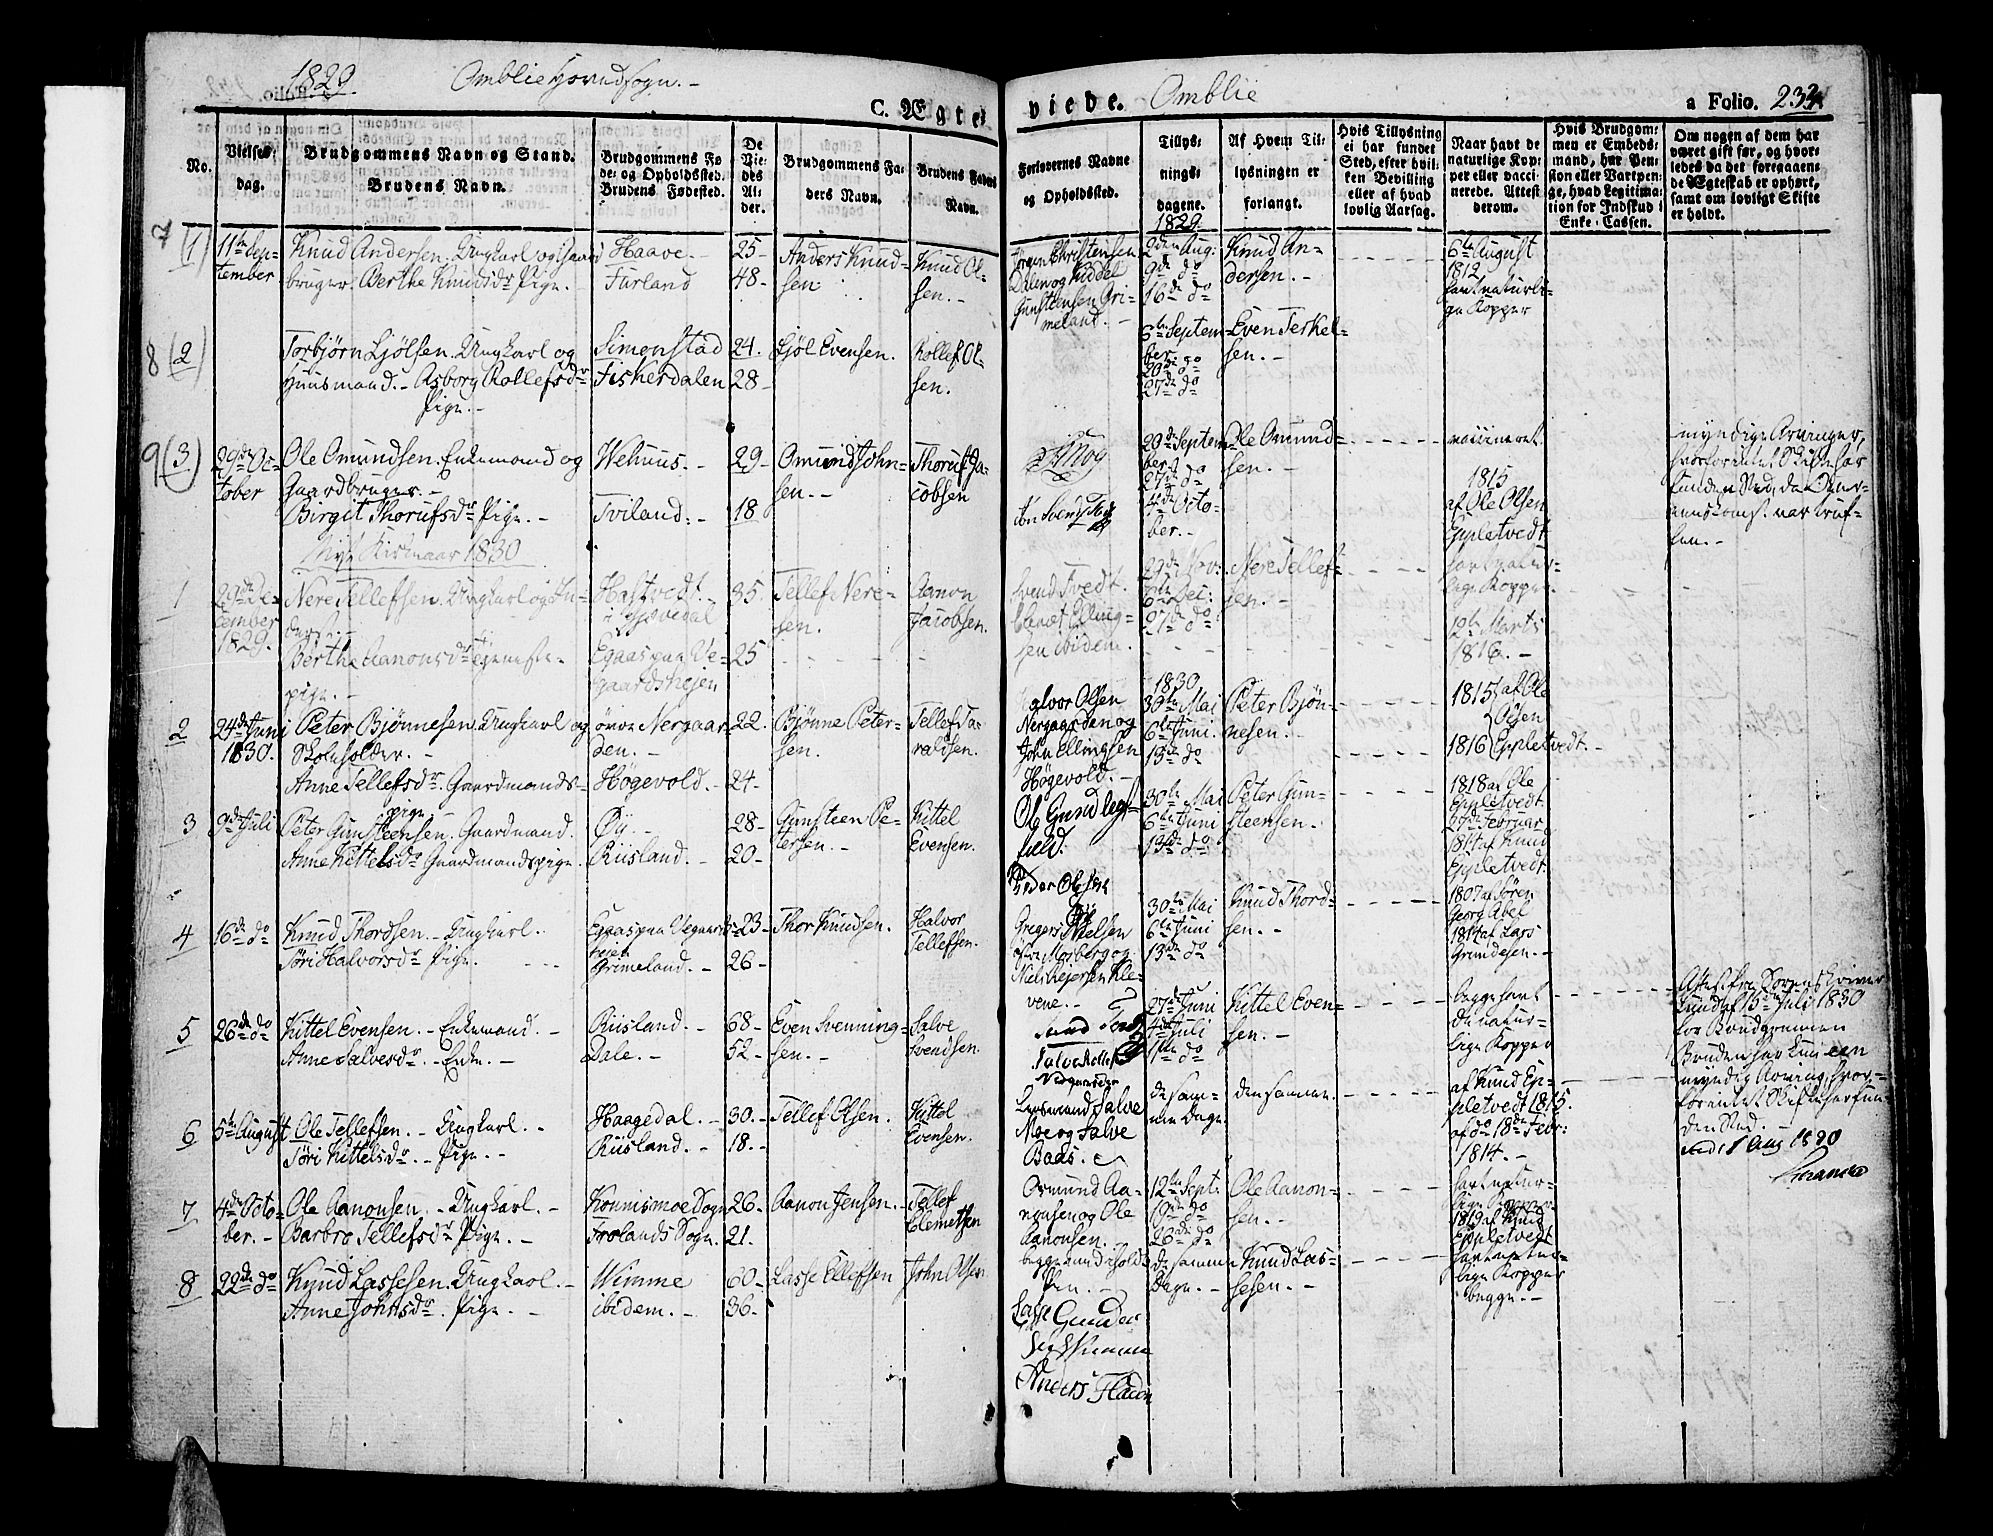 1829
Omblie Hovedsogn.-
C. Ægte-
viede.
Omblie
a Folio. 233
No.
Vielses-
dag.
Brudgommens Navn og Stand.
Brudens Navn.
Brudgommens Fø
de- og Opholdssted.
Brudens Fødested.
De
Vie-
des
Al-
der.
Brudgommens Fa-
ders Navn.
Brudens Faders
Navn.
Forlovernes Navne
og Opholdssted.
Tillys-
nings-
dagene.
1829
Af Hvem Til-
lysningen er
forlangt.
Hvis Tillysning
ei har fundet
Sted, efter hvil-
ken Bevilling
eller af hvad
lovlig Aarsag.
Naar havt de
naturlige Kop-
per eller vacci-
nerede. Attest
derom.
Hvis Brudgom-
men er Embeds-
mand, har Pen-
sion eller Vartpen-
ge, hvad Legitima-
tion for Indskud i
Enke-Cassen.
Om nogen af dem har
været gift før, og hvor-
ledes da det foregaaen-
de Ægteskab er ophørt,
samt om lovligt Skifte
er holdt.
7 (1)
11te Sep-
tember
Knud Andersen. Ungkarl og Gaard
bruger. Berthe Knudsdr Pige.-
Haave.-
Furland
25-
48-
Anders Knud-
sen
Knud Ol-
sen.-
Jørgen Christensen
Dalen og Kiddel
Gunsteensen Gri-
meland.-
2den Aug:
9de do
16de do
Knud An-
dersen.-
6te August
1812
havt naturli-
ge Kopper
8 (2)
Torbjørn Ljølsen. Ungkarl og
Huusmand.- Asborg Rollefsdr
Pige.-
Simonstad
Fiskerdalen
24.
28-
Ljøl Evensen.
Rollef Ol-
sen.
6te Septem-
ber.
20de do
27de do
Even Terkel-
sen.-
9 (3)
29de Oc-
tober
Ole Omundsen. Enkemand og
Gaardbruger.-
Birgit Thorufsdr Pige.-
Wehuus.-
Tviland.-
29-
18-
Omund John-
sen.-
Thoruf Ja-
cobsen
20de Septem-
ber
27de do
4de Octo-
ber.-
Ole Omund-
sen.-
vaccineret.
1815
af Ole Olsen
Eppletvedt
myndige Arvinger,
Nyt Kirkeaar 1830
1
29de De-
cember
1829.
Nere Tellefsen. Ungkarl og In-
derst.-
Berthe Aanonsdr Tjeneste-
pige.-
Egaas paa Ve-
gaardsheien
35.
25
Tellef Nere-
sen.
Aanon
Jacobsen.
Svend Tvedt.
sen ibidem.
29de Nov:
6te Dec:
27de do
Nere Tellef-
sen.-
havt natur-
lige Kopper
12te Marts
1816.-
2
24de Juni
1830.
Peter Bjønnesen. Ungkarl og
Skoleholder.-
Anne Tellefsdr. Gaardmands-
pige.-
øvre Nergaar-
den.-
Høgevold.-
22.
24-
Bjønne Peter-
sen.
Tellef Ta-
raldsen.
Halvor Olsen
Nergaarden og
John Ellingsen
Høgevold.-
1830
30te Mai
6te Juni.
13de do
Peter Bjøn-
nesen.-
1815 af Ole
Olsen
1816 Eppletvedt.-
3
9de Juli
Peter Gunsteensen. Gaardmand.
Anne Kittelsdr Gaardmandspige.
Øy.-
Riisland.-
28-
20-
Gunsteen Pe-
tersen.-
Kittel
Evensen.
Peder Olsen
Øy
30te Mai
6te Juni
13de do
Peter Gun-
steensen.-
1818 af Ole
Eppletvedt
27de Februar
1814 af Knud
Eppletvedt.
4
16de do
Knud Thordsen.- Ungkarl.
Tøri Halvorsdr Pige.-
Egaas paa Vegaards-
heien
Grimeland.-
23-
26-
Thor Knudsen.
Halvor
Tellefsen.
Gregers Nielsen
øvre Mosberg og
Niels Rejersen Kle-
vene.-
30te Mai
6te Juni
13de do
Knud Thord-
sen.-
1807 af Søren
Georg Abel
1814 af Lars
Grundesen.-
5
26de do
Kittel Evensen.- Enkemand.-
Anne Salvesdr.- Enke.-
Riisland.-
Dale.-
68-
52-
Even Svenning-
sen.-
Salve
Svendsen.
27de Juni
4de Juli
11te do
Kittel Even-
sen.-
begge havt
de natur-
lige Kopper
Attest fra Sorenskriver
Lund af 15de Juli 1830
for Brudgommen
Bruden har kun een
myndig Arving, hvor-
for intet Skifte har fun-
den Sted.-
1 Aug 1830
6
5te August
Ole Tellefsen.- Ungkarl.-
Tøri Kittelsdr.- Pige.-
Haagedal.-
Riisland.-
30.-
18-
Tellef Olsen.
Kittel
Evensen.
Lensmand Salve
Moe og Salve
Baas.
de sam-
me Dage
den samme.
af Knud Ep-
pletvedt 1815.
af do 18de Febr:
1814.-
7
4de Octo-
ber.-
Ole Aanonsen.- Ungkarl.-
Barbro Tellefsdr Pige.-
Konnismoe Sogn
Frolands Sogn.
26-
21.
Aanon Jensen.-
Tellef
Clemetsen
Osmund Aa-
nonsen og Ole
Aanonsen.-
12te Sept.
19de do
26de do
Ole Aanon-
sen.-
havt natur-
lige Kopper
1819 af Knud
Eppletvedt
8
22de do
Knud Lassesen. Ungkarl.-
Anne Johnsdr. Pige.-
Wimme
ibidem.-
60-
36-
Lasse Ellefsen
John Olsen
de samme
Dage.-
Knud Las-
sesen.-
havt natur-
lige Kopper
begge.-